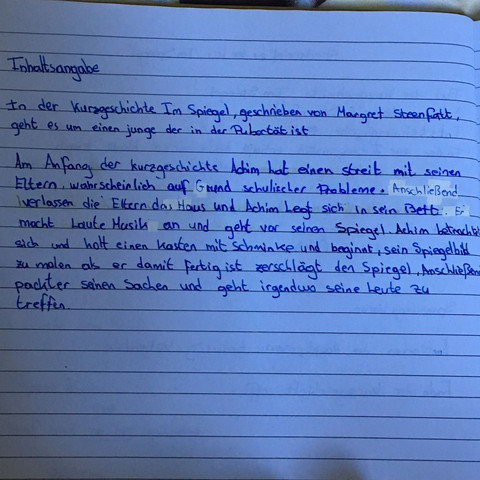 Inhaltsangabe
In der Kurzgeschichte Im Spiegel, geschrieben von Margret Steenfatt,
geht es um einen junge der in der Pubertät ist
Am Anfang der Kurzgeschichte Achim hat einen streit mit seinen
Eltern, wahrscheinlich auf Grund schulischer Probleme. Anschließend
verlassen die Eltern das Haus und Achim legt sich in sein Bett. Er
macht Laute Musik an und geht vor seinen Spiegel Achim betrachtet
sich und holt einen Kasten mit Schminke und beginnt, sein Spiegelbild
zu malen als er damit fertig ist zerschlägt den Spiegel, Anschließen
packter seinen Sachen und geht irgendwo seine Leute zu
treffen.